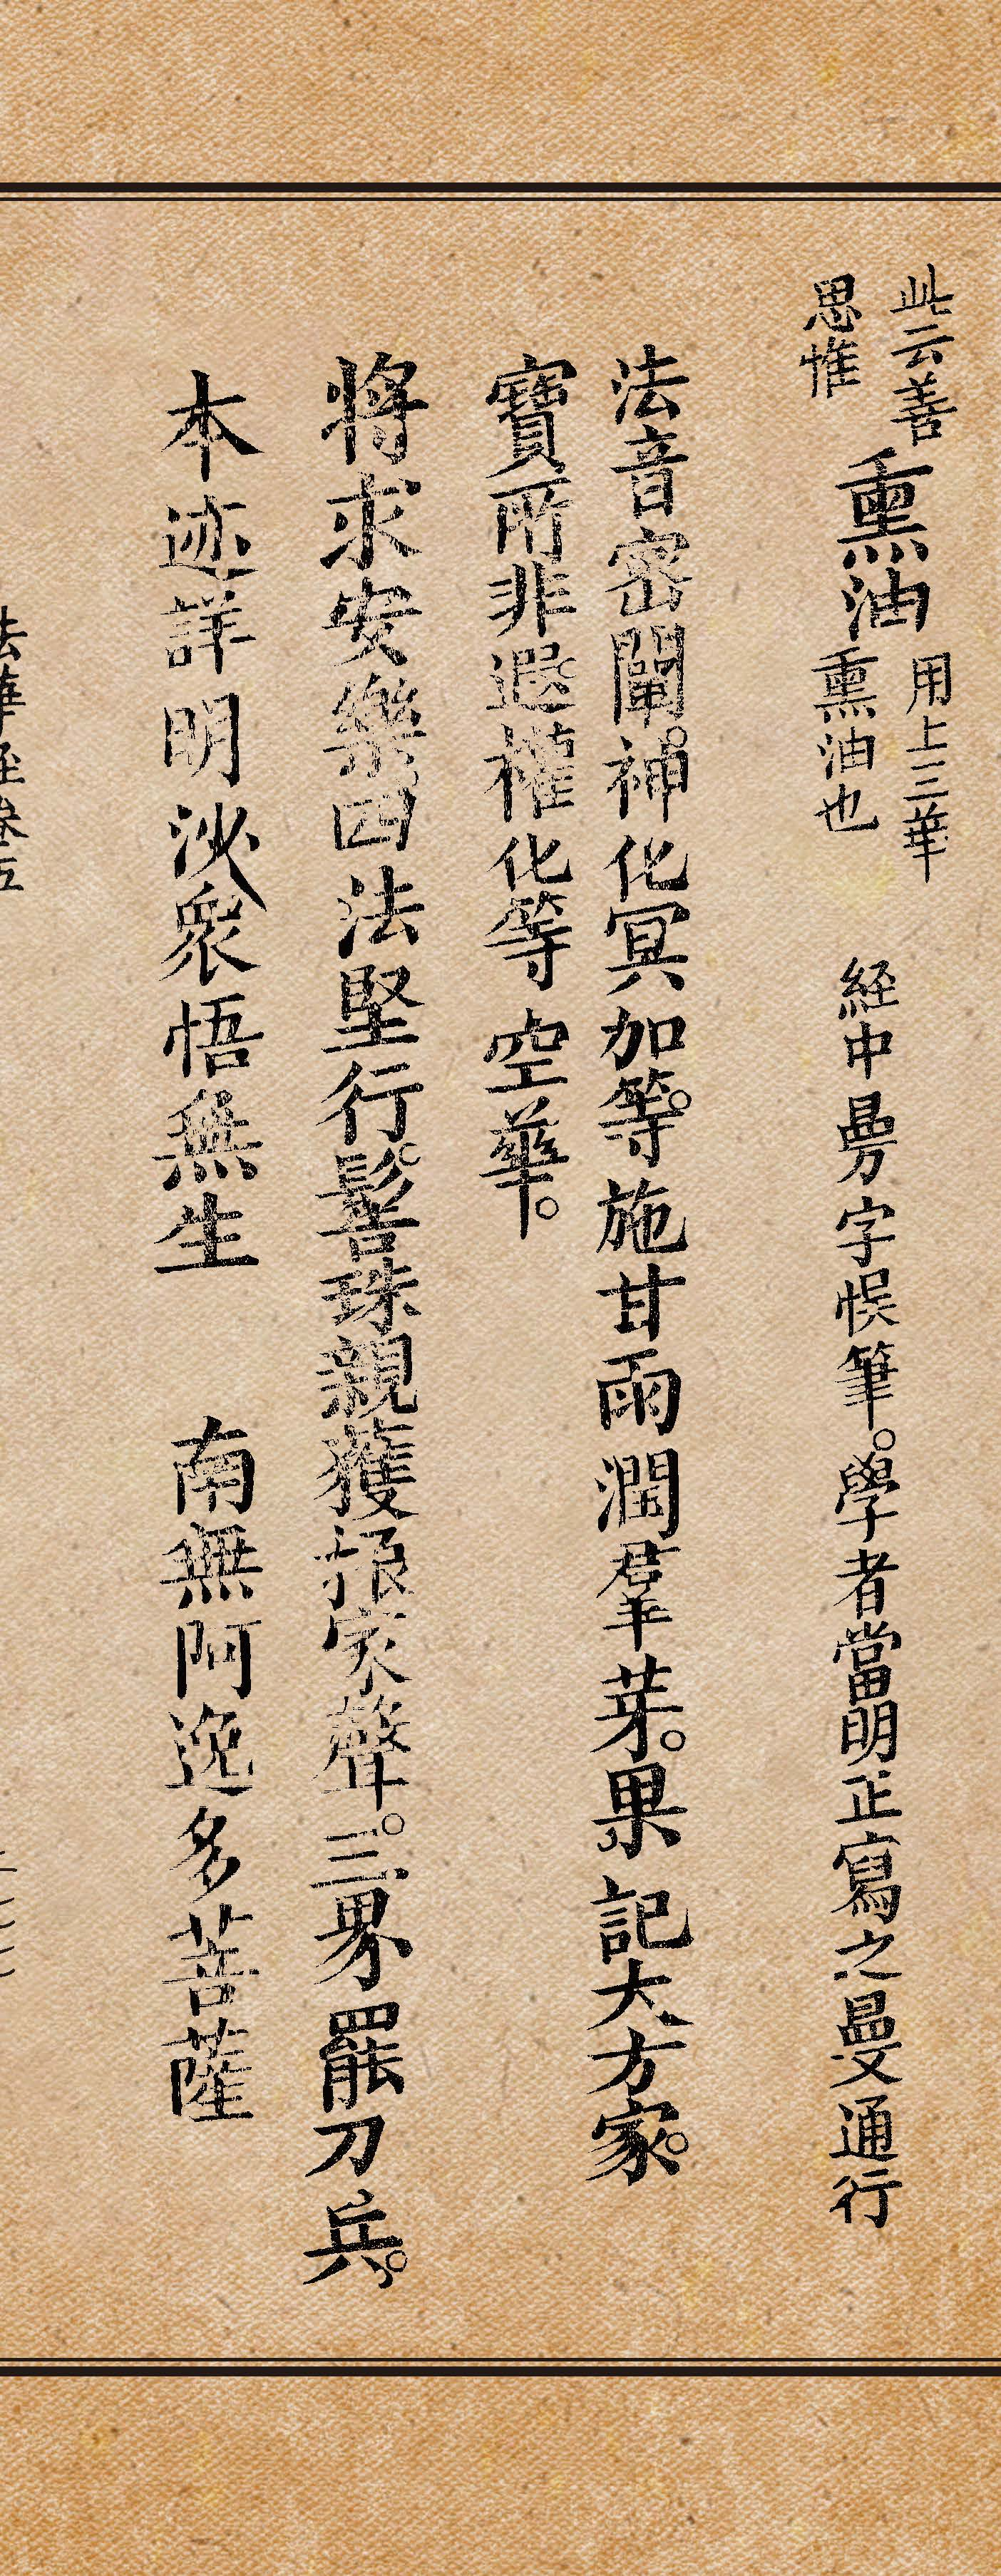 此云善
思惟
熏油
用上三華
熏油也
經中㬅字悞筆。學者當明正寫之曼通行
法音密闡。神化冥加等。施甘雨潤羣芽。果記大方家。
寶所非遐。權化等空華。
將求安樂。四法堅行。髻珠親獲振家聲。三界罷刀兵。
本迹詳明沙眾悟無生 南無阿逸多菩薩
法華經卷五